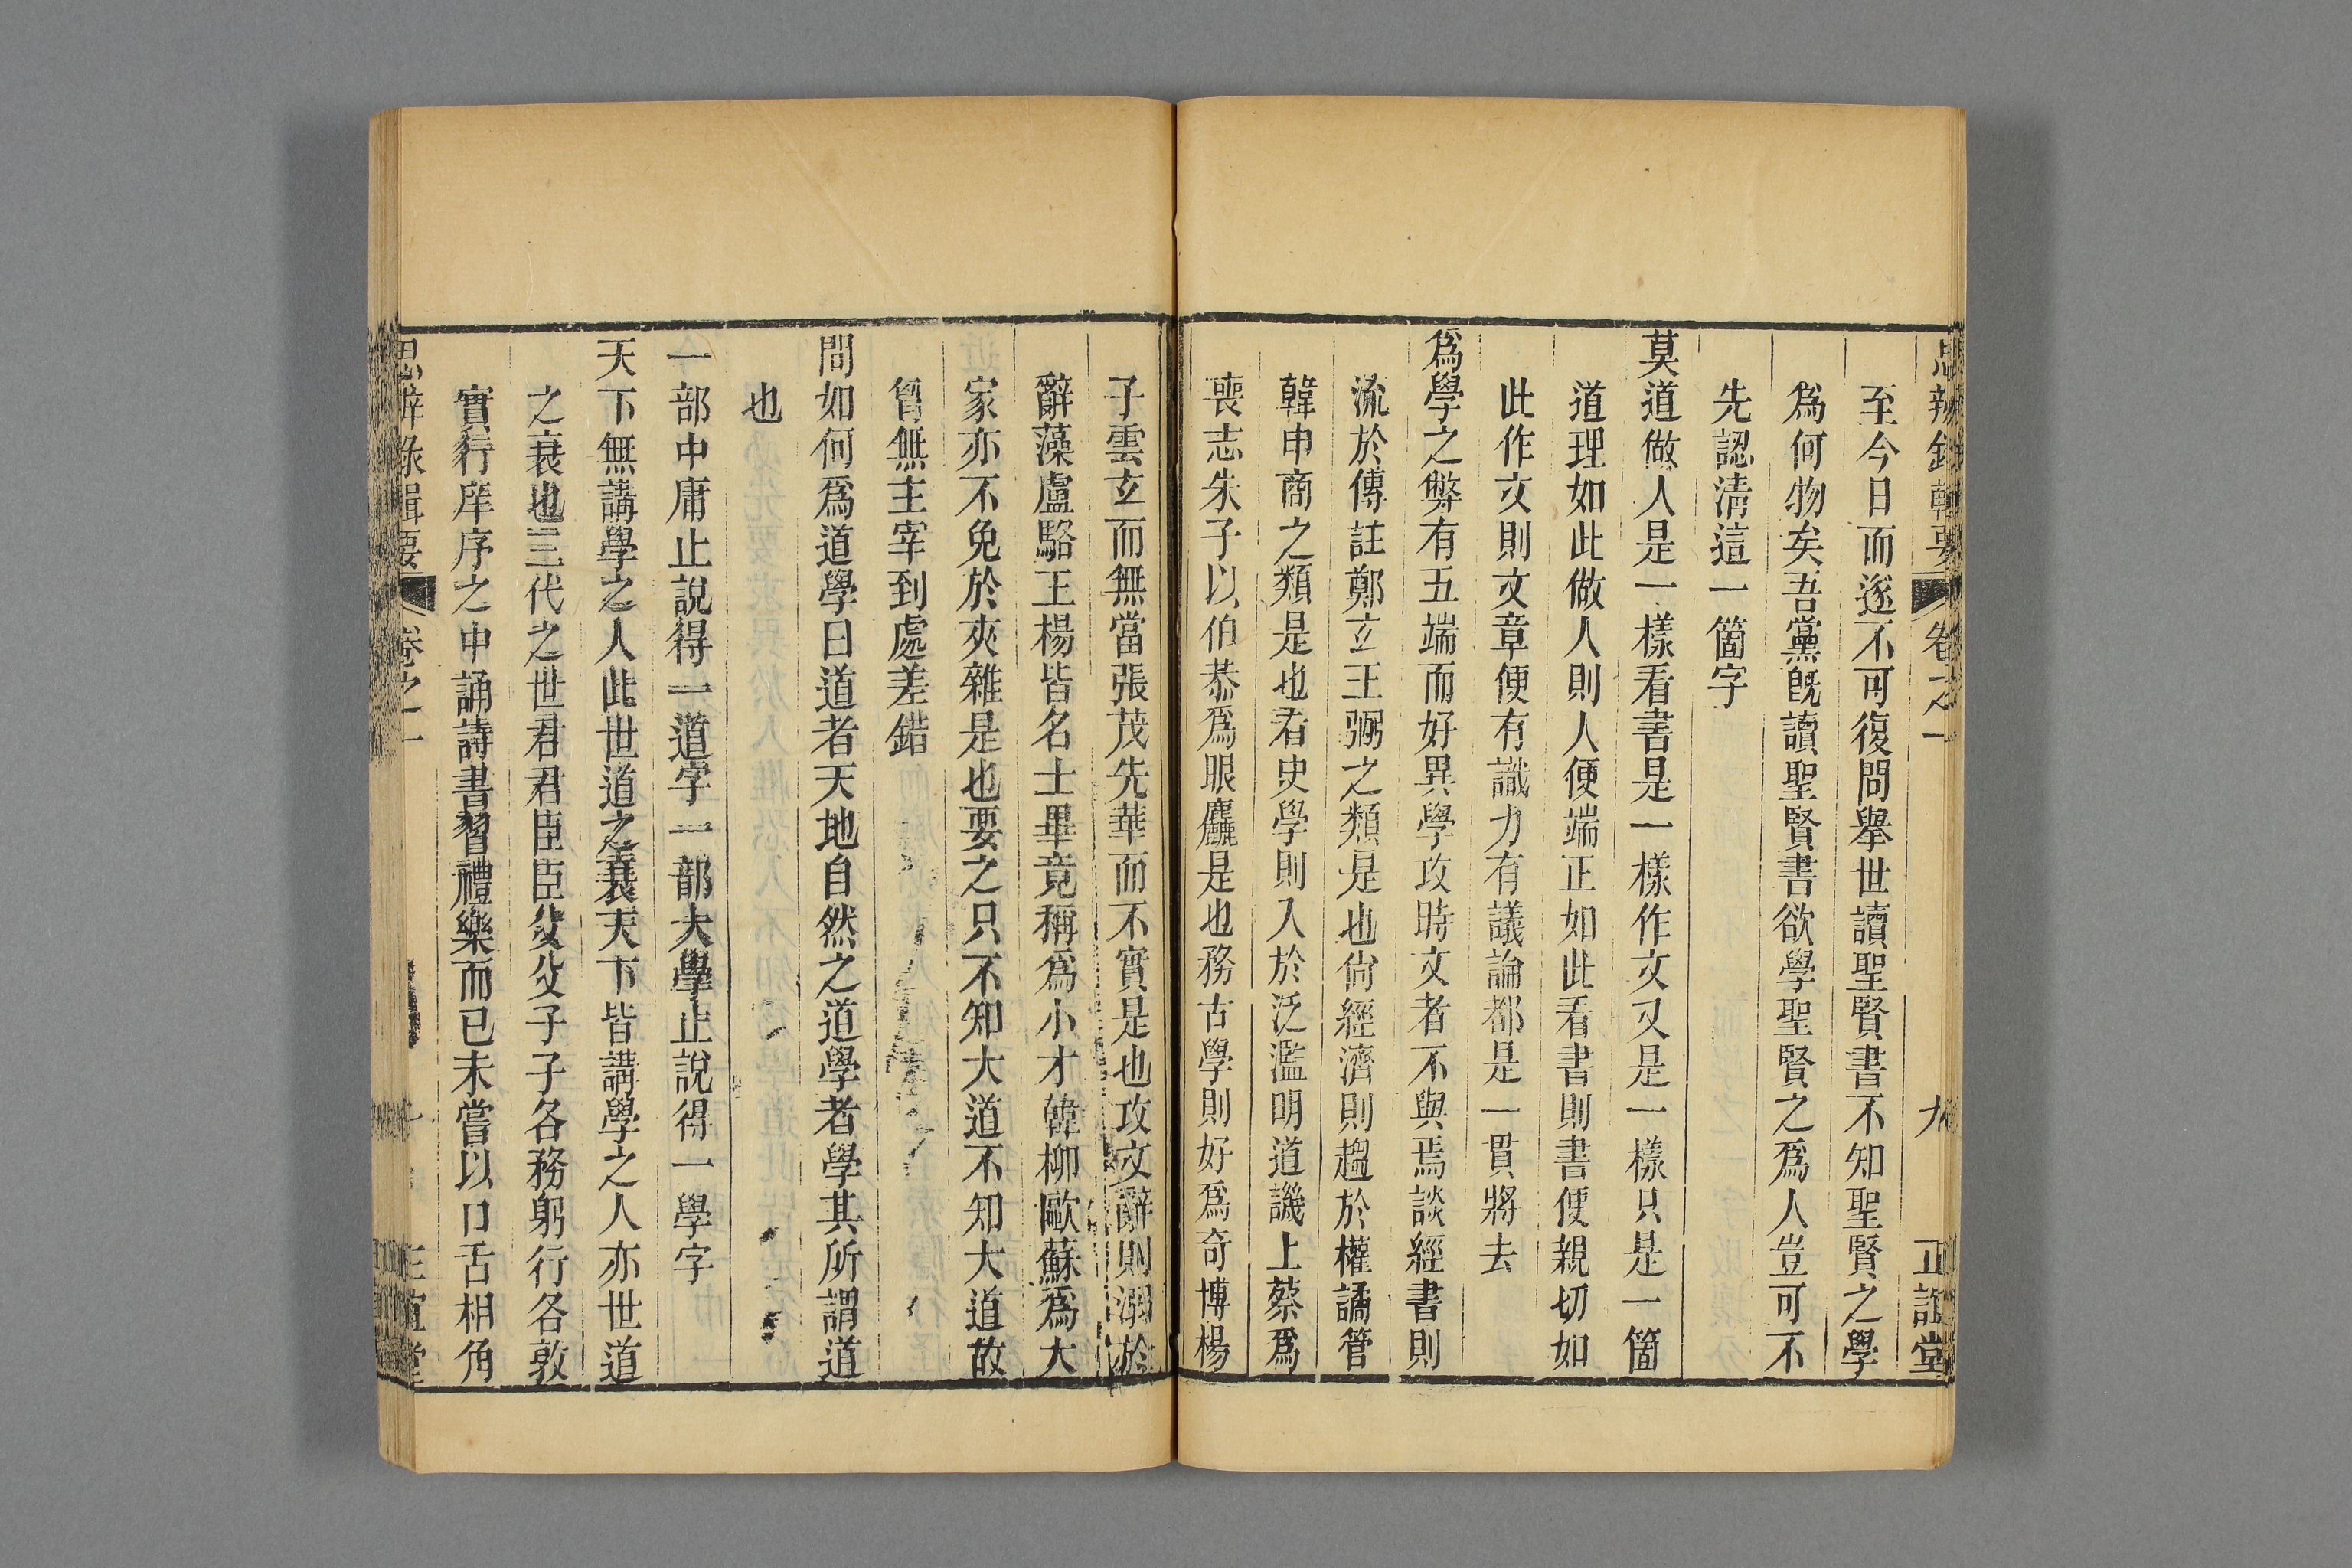 思辨錄輯要 卷之一 九 正誼堂
至今日而遂不可復問舉世讀聖賢書不知聖賢之學
爲何物矣吾黨旣讀聖賢書欲學聖賢之爲人豈可不
先認清這一箇字
莫道做人是一樣看書是一樣作文又是一樣只是一箇
道理如此做人則人便端正如此看書則書便親切如
此作文則文章便有識力有議論都是一貫將去
爲學之弊有五端而好異學攻時文者不與焉談經書則
流於傳註鄭玄王弼之類是也尙經濟則趨於權譎管
韓申商之類是也看史學則入於泛濫明道譏上蔡爲
喪志朱子以伯恭爲眼麤是也務古學則好爲奇博楊
子雲玄而無當張茂先華而不實是也攻文辭則溺於
辭藻盧駱王楊皆名士畢竟稱爲小才韓柳歐蘇爲大
家亦不免於夾雜是也要之只不知大道不知大道故
胷無主宰到處差錯
問如何爲道學曰道者天地自然之道學者學其所謂道
也
一部中庸止說得一道字一部大學止說得一學字
天下無講學之人此世道之衰天下皆講學之人亦世道
之衰也三代之世君君臣臣父父子子各務躬行各敦
實行庠序之中誦詩書習禮樂而已未嘗以口舌相角
思辨錄輯要 卷之一 正誼堂